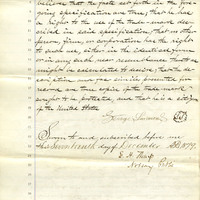 believe that the facts set forth in the fore-
going specification are true; that he has
a right to the use of the trade-mark des-
cribed in said specification; that no other
person, firm, or corporation has the right
to such use, either in the identical form
or in any such near resemblance thereto as
might be calculated to deceive; that the de-
scription and fac-similes presented for
record are true copies of the trade-mark
sought to be protected, and that he is a citizen
of the United States.
George
Sworn to and subscribed before me
this Seventeenth day of December A.D. 1879.
E. H.
Notary Public